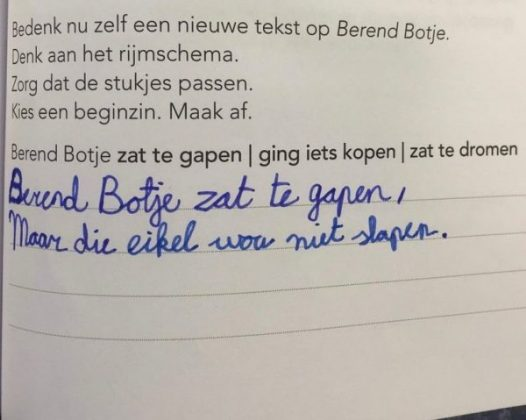 Bedenk nu zelf een nieuwe tekst op Berend Botje.
Denk aan het rijmschema.
Zorg dat de stukjes passen.
Kies een beginzin. Maak af.
Berend Botje zat te gapen | ging iets kopen | zat te dromen
Berend Botje zat te gapen,
Maar die eikel wou niet slapen.